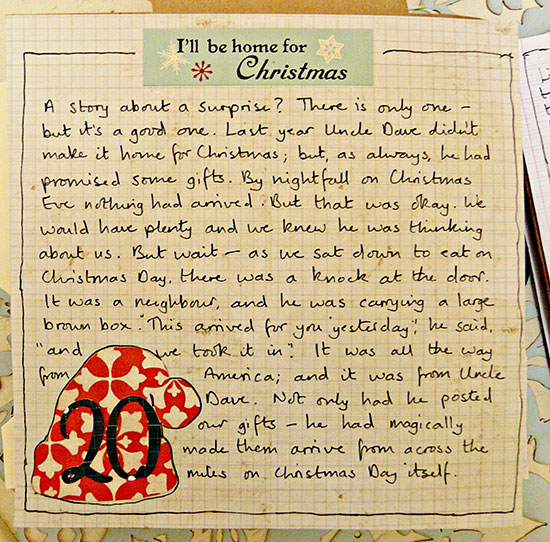 I'll be home for
Christmas
A story about a surprise? There is only one –
but it's a good one. Last year Uncle Dave didn't
make it home for Christmas; but, as always, he had
promised some gifts. By nightfall on Christmas
Eve nothing had arrived. But that was okay. We
would have plenty and we knew he was thinking
about us. But wait – as we sat down to eat on
Christmas Day, there was a knock at the door.
It was a neighbour, and he was carrying a large
brown box. "This arrived for you yesterday", he said,
"and we took it in". It was all the way
from America; and it was from Uncle
Dave. Not only had he posted
our gifts – he had magically
made them arrive from across the
miles on Christmas Day itself.
20